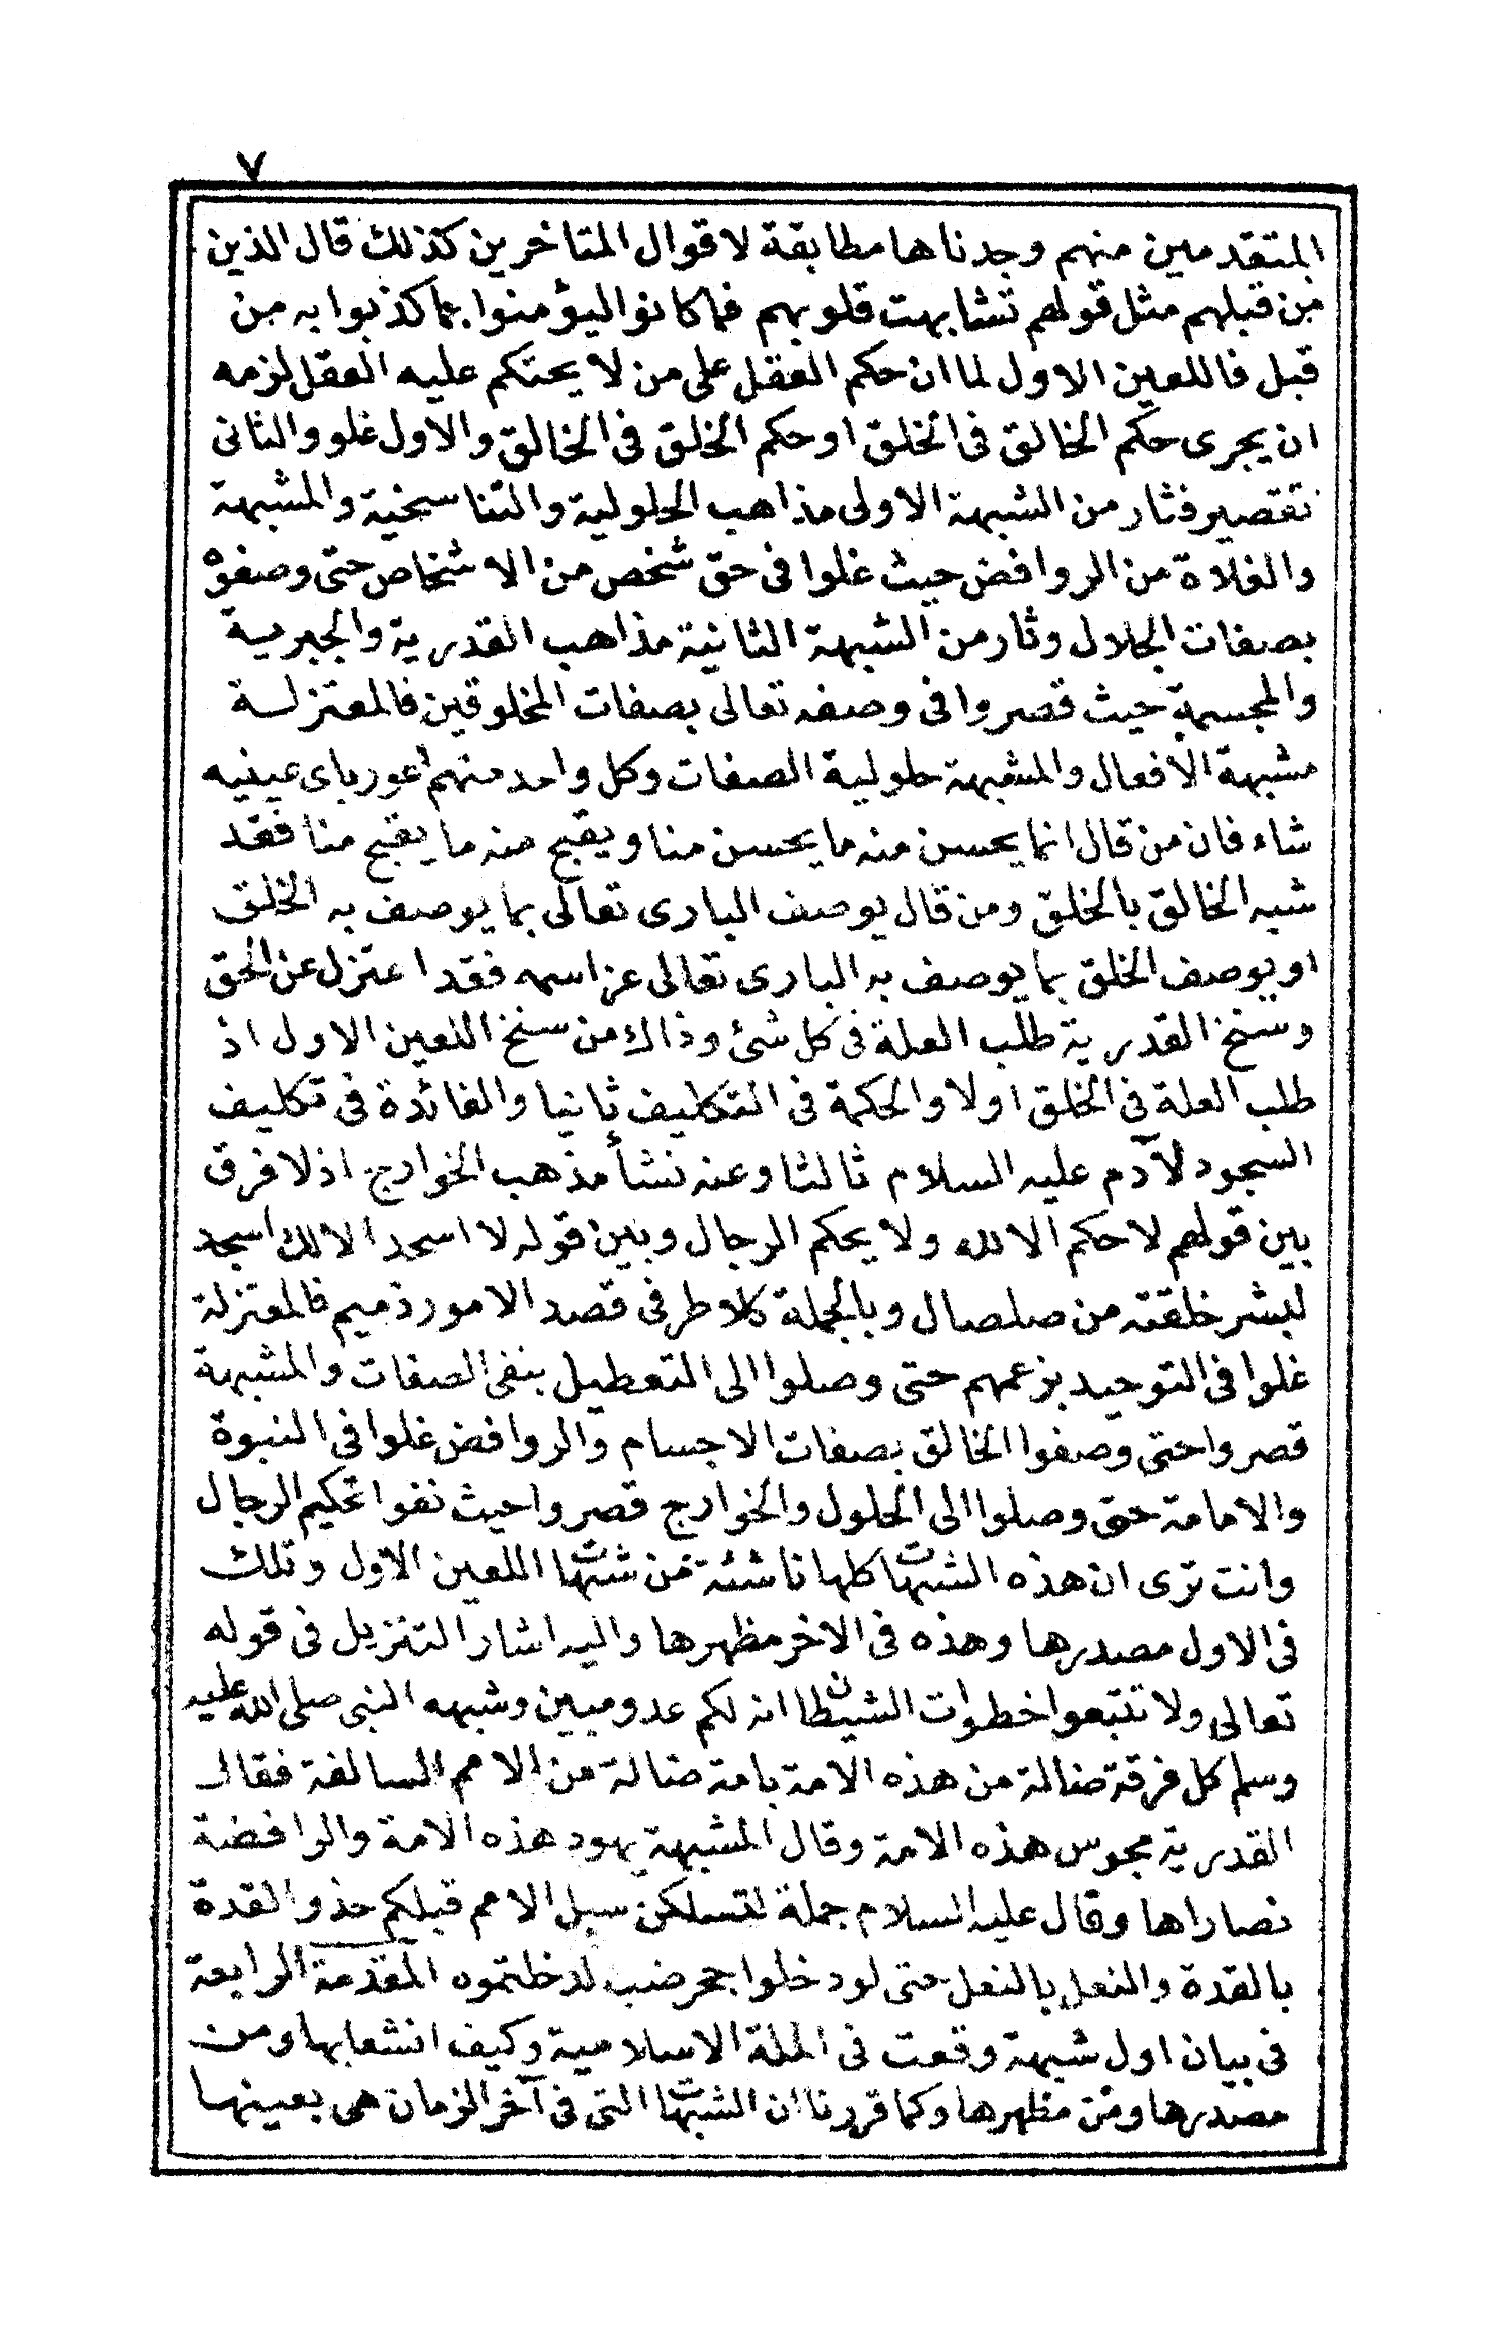 ٧
المتقدمين منهم وجدناها مطابقة لاقوال المتاخرين كذلك قال الذين
من قبلهم مثل قولهم تشابهت قلوبهم فما كانوا ليؤمنوا بما كذبوا به من
قبل فاللعين الاول لما ان حكم العقل على من لا يحتكم عليه العقل لزمه
ان يجرى حكم الخالق فى الخلق او حكم الخلق فى الخالق والاول غلو والثانى
تقصير فثار من الشبهة الاولى مذاهب الحلولية والتناسخية والمشبهة
والغلاة من الروافض حيث غلوا فى حق شخص من الاشخاص حتى وصفوه
بصفات الجلال وثار من الشبهة الثانية مذاهب القدرية والجبرية
والمجسمة حيث قصروا فى وصفه تعالى بصفات المخلوقين فالمعتزلة
مشبهة الافعال والمشبهة حلولية الصفات وكل واحد منهم اعور باى عينيه
شاء فان من قال انما يحسن منه ما يحسن منا ويقبح منه ما يقبح منا فقد
شبه الخالق بالخلق ومن قال يوصف البارى تعالى بما يوصف به الخلق
او يوصف الخلق بما يوصف به البارى تعالى عز اسمه فقد اعتزل عن الحق
وسنخ القدرية طلب العلة فى كل شئ وذاك من سنخ اللعين الاول اذ
طلب العلة فى الخلق اولا والحكمة فى التكليف ثانيا والفائدة فى تكليف
السجود لآدم عليه السلام ثالثا وعنه نشأ مذهب الخوارج اذ لا فرق
بين قولهم لا حكم الا لله ولا يحكم الرجال وبين قوله لا اسجد الا لك اسجد
لبشر خلقته من صلصال وبالجملة كلا طرفى قصد الامور ذميم فالمعتزلة
غلوا فى التوحيد بزعمهم حتى وصلوا الى التعطيل بنفى الصفات والمشبهة
قصروا حتى وصفوا الخالق بصفات الاجسام والروافض غلوا فى النبوة
والامامة حتى وصلوا الى الحلول والخوارج قصروا حيث نفوا تحكيم الرجال
وانت ترى ان هذه الشبهات كلها ناشئة من شبهات اللعين الاول وتلك
فى الاول مصدرها وهذه فى الاخر مظهرها واليه اشار التنزيل فى قوله
تعالى ولا تتبعوا خطوات الشيطان انه لكم عدو مبين وشبهه النبى صلى الله عليه
وسلم كل فرقة ضالة من هذه الامة بامة ضالة من الامم السالفة فقال
القدرية مجوس هذه الامة وقال المشبهة يهود هذه الامة والرافضة
نصاراها وقال عليه السلام جملة لتسلكن سبل الامم قبلكم حذو القذة
بالقذة والنعل بالنعل حتى لو دخلوا جحر ضب لدخلتموه المقدمة الرابعة
فى بيان اول شبهة وقعت فى الملة الاسلامية وكيف انشعابها ومن
مصدرها ومن مظهرها وكما قررنا ان الشبهات التى فى آخر الزمان هى بعينها